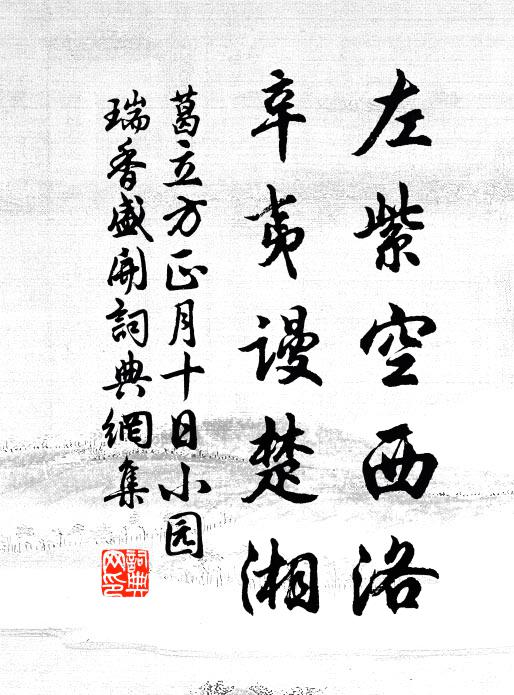 左紫空西洛
辛夷谩楚湘
葛立方正月十日小园
瑞香盛開詞典網集
詞典网印